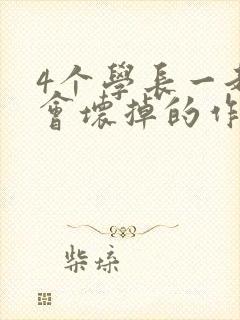 4个學長一
會壞掉的作
柴垛